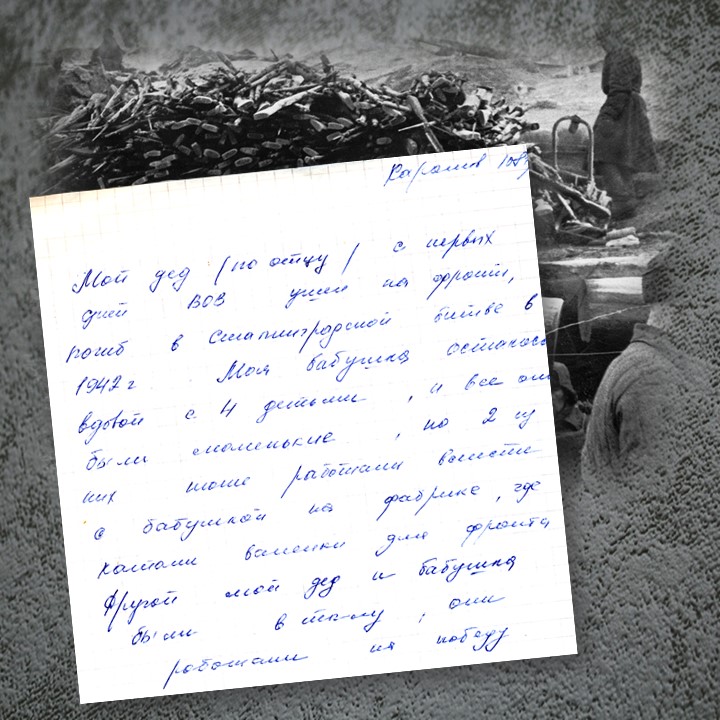 Мой дед (по отцу) с первых
дней ВОВ ушел на фронт,
погиб в Сталинградской битве в
1942 г Моя бабушка осталась
вдовой с 4 детьми, и все они
были маленькие, но 2 из
них тоже работали вместе
с бабушкой на фабрике, где
катали валенки для фронта
Другой мой дед и бабушка
были в тылу, они
работали на победу